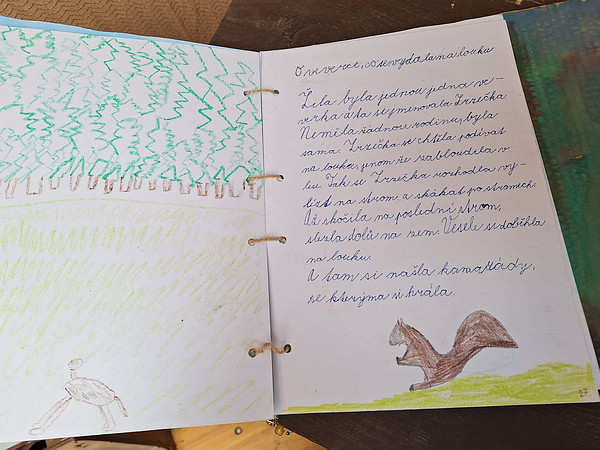 O veverce, co se vydala na louku
Žila byla jednou jedna ve-
verka a ta se jmenovala Zrzečka.
Neměla žádnou rodinu, byla
sama. Zrzečka se chtěla podívat
na louku, jenom že zabloudila v
lese. Tak se Zrzečka rozhodla vy-
lézt na strom a skákat po stromech.
Až skočila na poslední strom,
slezla dolů na zem. Vesele si doběhla
na louku.
A tam si našla kamarády,
se kterýma si hrála.
27